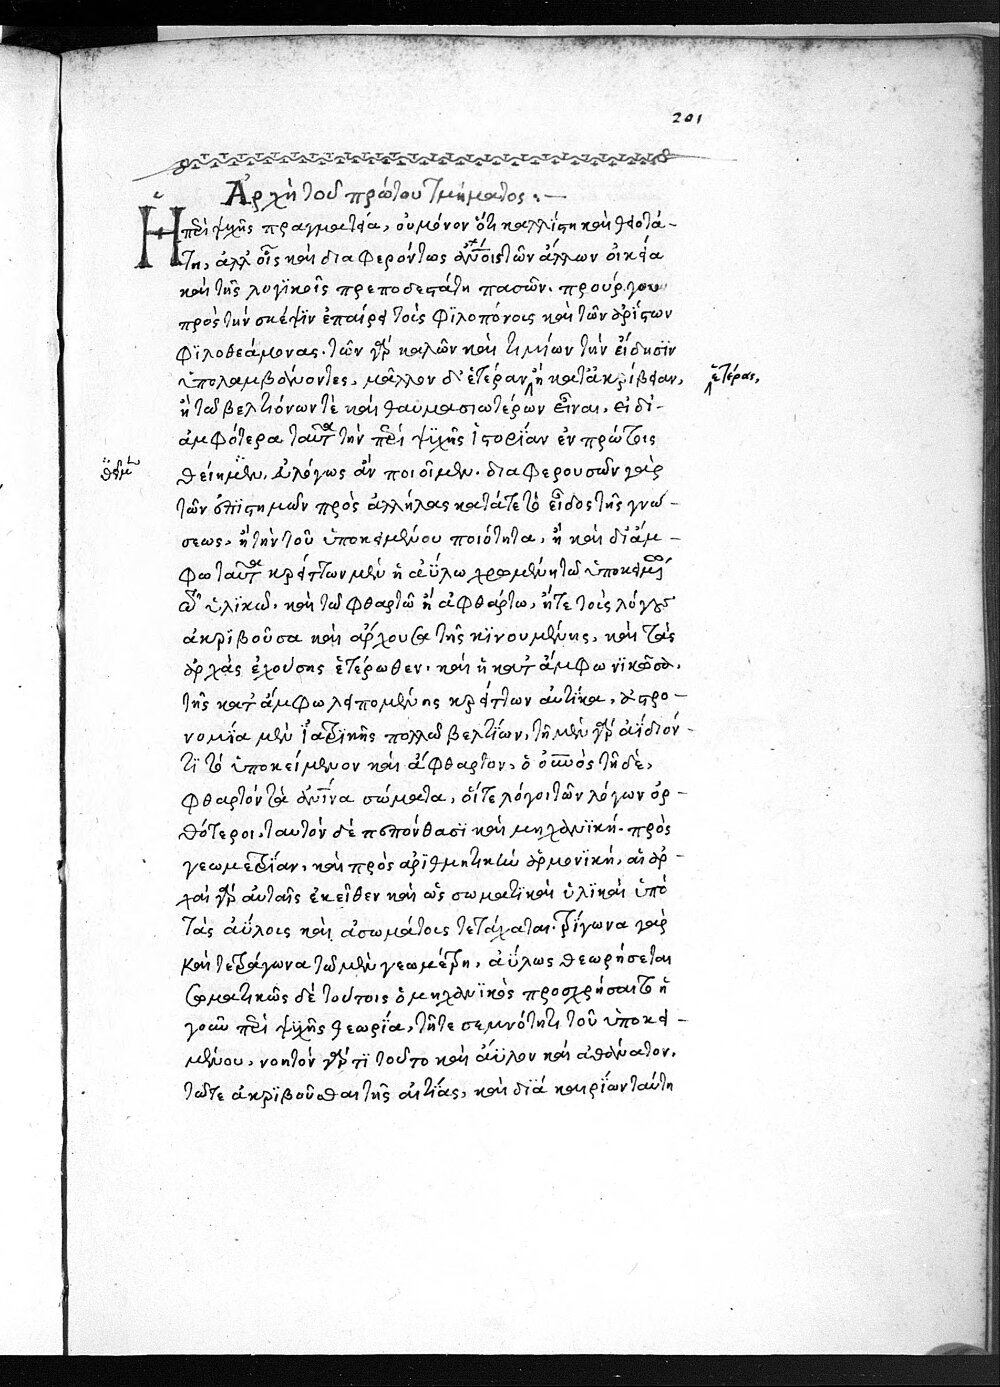 201
Ἀρχὴ τοῦ πρώτου τμήματος :—
Ἡ περὶ ψυχῆς πραγματεία, οὐ μόνον ὅτι καλλίστη καὶ θειοτά-
τη, ἀλλ' οἷς καὶ διαφερόντως τῶν ἄλλων οἰκεία
καὶ τῆς λογικοῖς πρεπωδεστάτη πασῶν. προύργου
πρὸς τὴν σκέψιν ἐπαίρει τοὺς φιλοπόνοις καὶ τῶν ἀρίστων
φιλοθεάμονας. τῶν γὰρ καλῶν καὶ τιμίων τὴν εἴδησιν
ὑπολαμβάνοντες, μᾶλλον δ' ἑτέραν ἢ κατ' ἀκρίβειαν, ἑτέρας,
ἢ τῷ βελτιόνων τὲ καὶ θαυμασιωτέρων εἶναι, εἰ δι'
ἀμφότερα ταῦτα τὴν περὶ ψυχῆς ἱστορίαν ἐν πρώτοις
θείημεν, εὐλόγως ἂν ποιοῖμεν. διαφερουσῶν γὰρ
τῶν ἐπιστημῶν πρὸς ἀλλήλας κατά τε τὸ εἶδος τῆς γνώ-
σεως, ἢ τὴν τοῦ ὑποκειμένου ποιότητα, ἢ καὶ δι' ἄμ-
φω ταῦτα κρείττων μὲν ἡ ἀΰλω χρωμένη τῷ ὑποκειμένω
ὑλικῷ. καὶ τῷ φθαρτῷ ἡ ἀφθάρτω, ἥ τε τοῖς λόγοις
ἀκριβοῦσα καὶ ἄρχουσα τῆς κινουμένης, καὶ τὰς
ἀρχὰς ἐχούσης ἑτέρωθεν. καὶ ἡ κατ' ἄμφω νικῶσα.
τῆς κατ' ἄμφω λειπομένης κρείττων αὐτίκα, ἀστρο-
νομία μὲν ἰατρικῆς πολλῷ βελτίων, τῇ μὲν γὰρ ἀΐδιόν
τι τὸ ὑποκείμενον καὶ ἄφθαρτον, ὁ οὐρανὸς τῇ δὲ,
φθαρτὸν τὰ ἀνθρώπινα σώματα, οἵ τε λόγοι τῶν λόγων ὀρ-
θότεροι. ταυτὸν δὲ πεπόνθασι καὶ μηχανική. πρὸς
γεωμετρίαν, καὶ πρὸς ἀριθμητικὴν ἁρμονική, αἱ ἀρ-
χαὶ γὰρ αὐταῖς ἐκεῖθεν καὶ ὡς σωματικαὶ ὑλικαὶ ὑπὸ
τὰς ἀΰλοις καὶ ἀσωμάτοις τετάχαται. τρίγωνα γὰρ
καὶ τετράγωνα τῷ μὲν γεωμέτρῃ, ἀΰλως θεωρήσεται
σωματικῶς δὲ τούτοις ὁ μηχανικὸς προσχρήσαιτο ἡ
γοῦν περὶ ψυχῆς θεωρία, τῇ τε σεμνότητι τοῦ ὑποκει-
μένου, νοητὸν γάρ τι τοῦτο καὶ ἄϋλον καὶ ἀθάνατον.
τῷ τε ἀκριβοῦσθαι τῆς αἰτίας, καὶ διὰ κυρίων ταύτη